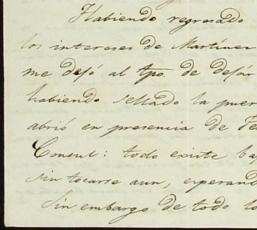 Habiendo regresado
los intereses de Martinez
me dejó al tpo. de dejar
habiendo sellado la puer
abrió en presencia de Fe
Consul: todo existe ba
sin tocarse aun, esperand
Sin embargo de todo lo